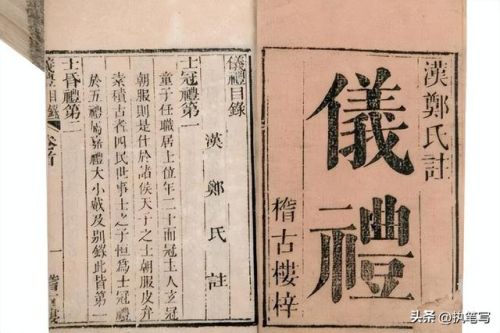 漢鄭氏註
儀禮
稽古樓梓
儀禮目錄
漢鄭氏註
士冠禮第一
童子任職居士位年二十而冠主人玄冠
朝服則是仕於諸侯天子之士朝服皮弁
素積古者四民世事士之子恒爲士冠禮
於五禮屬嘉禮大小戴及別錄此皆第一
士昏禮第二
儀禮目錄
一
頭条 @执笔写